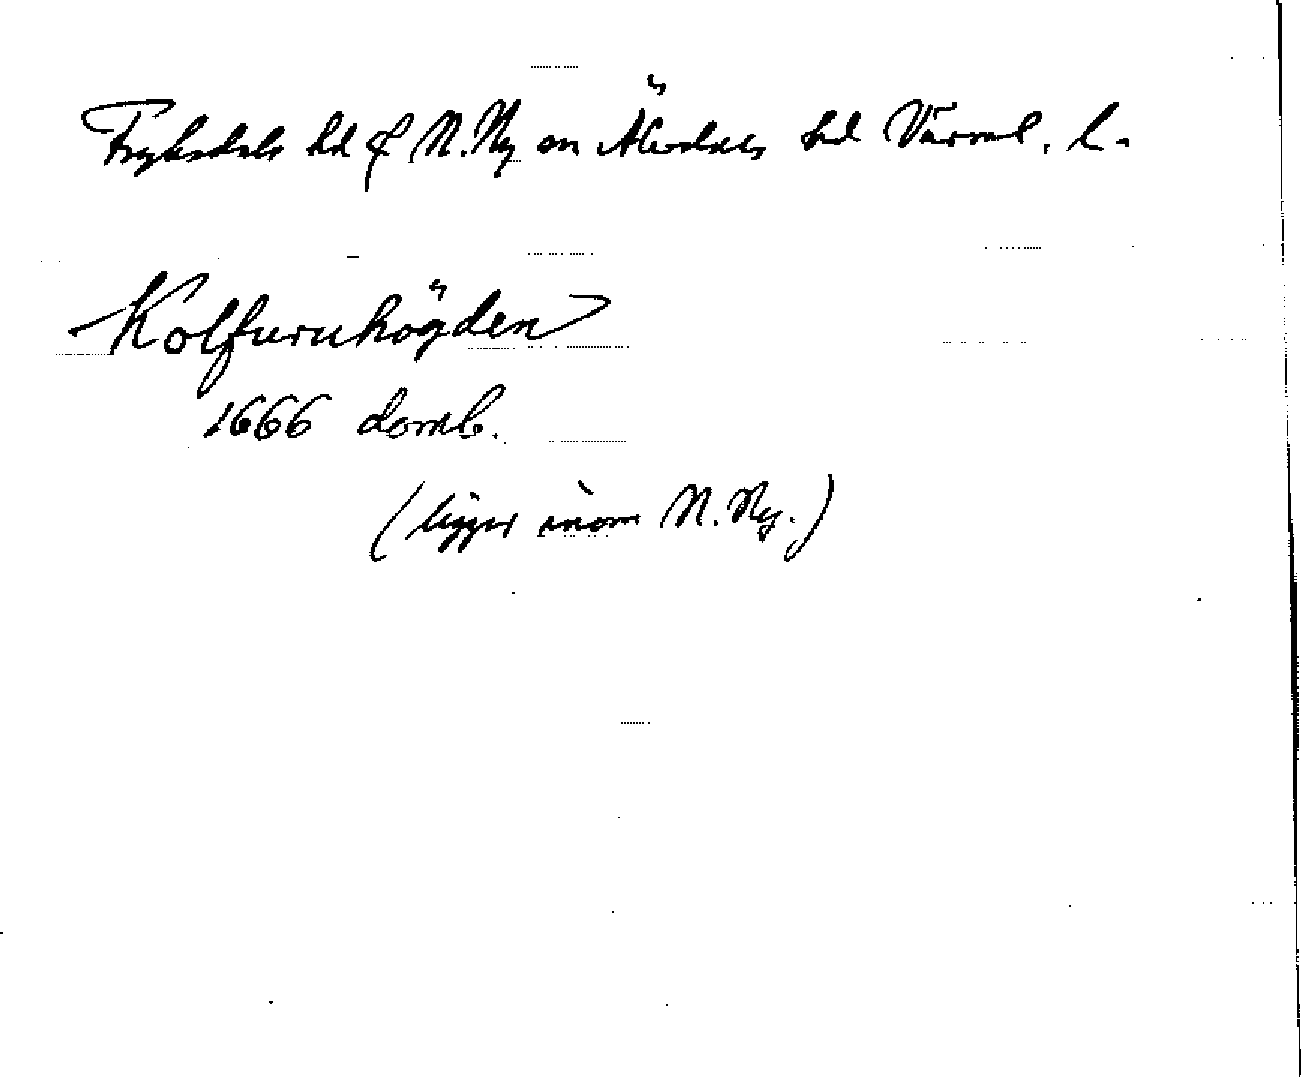 Fryksdals hd & N. Ny sn Älvdals hd Värml. l.
Kolfuruhögden
1666 domb.
(ligger inom N. Ny.)